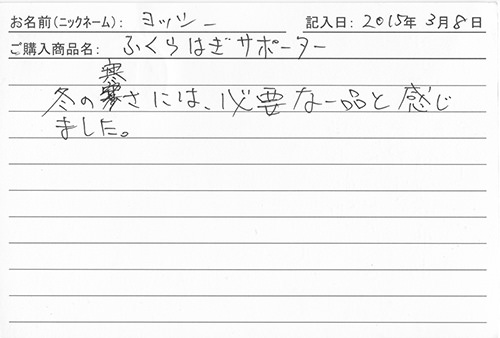 お名前(ニックネーム): ヨッシー 記入日: 2015年 3月 8日
ご購入商品名: ふくらはぎサポーター
冬の寒さには、必要な一品と感じ
ました。